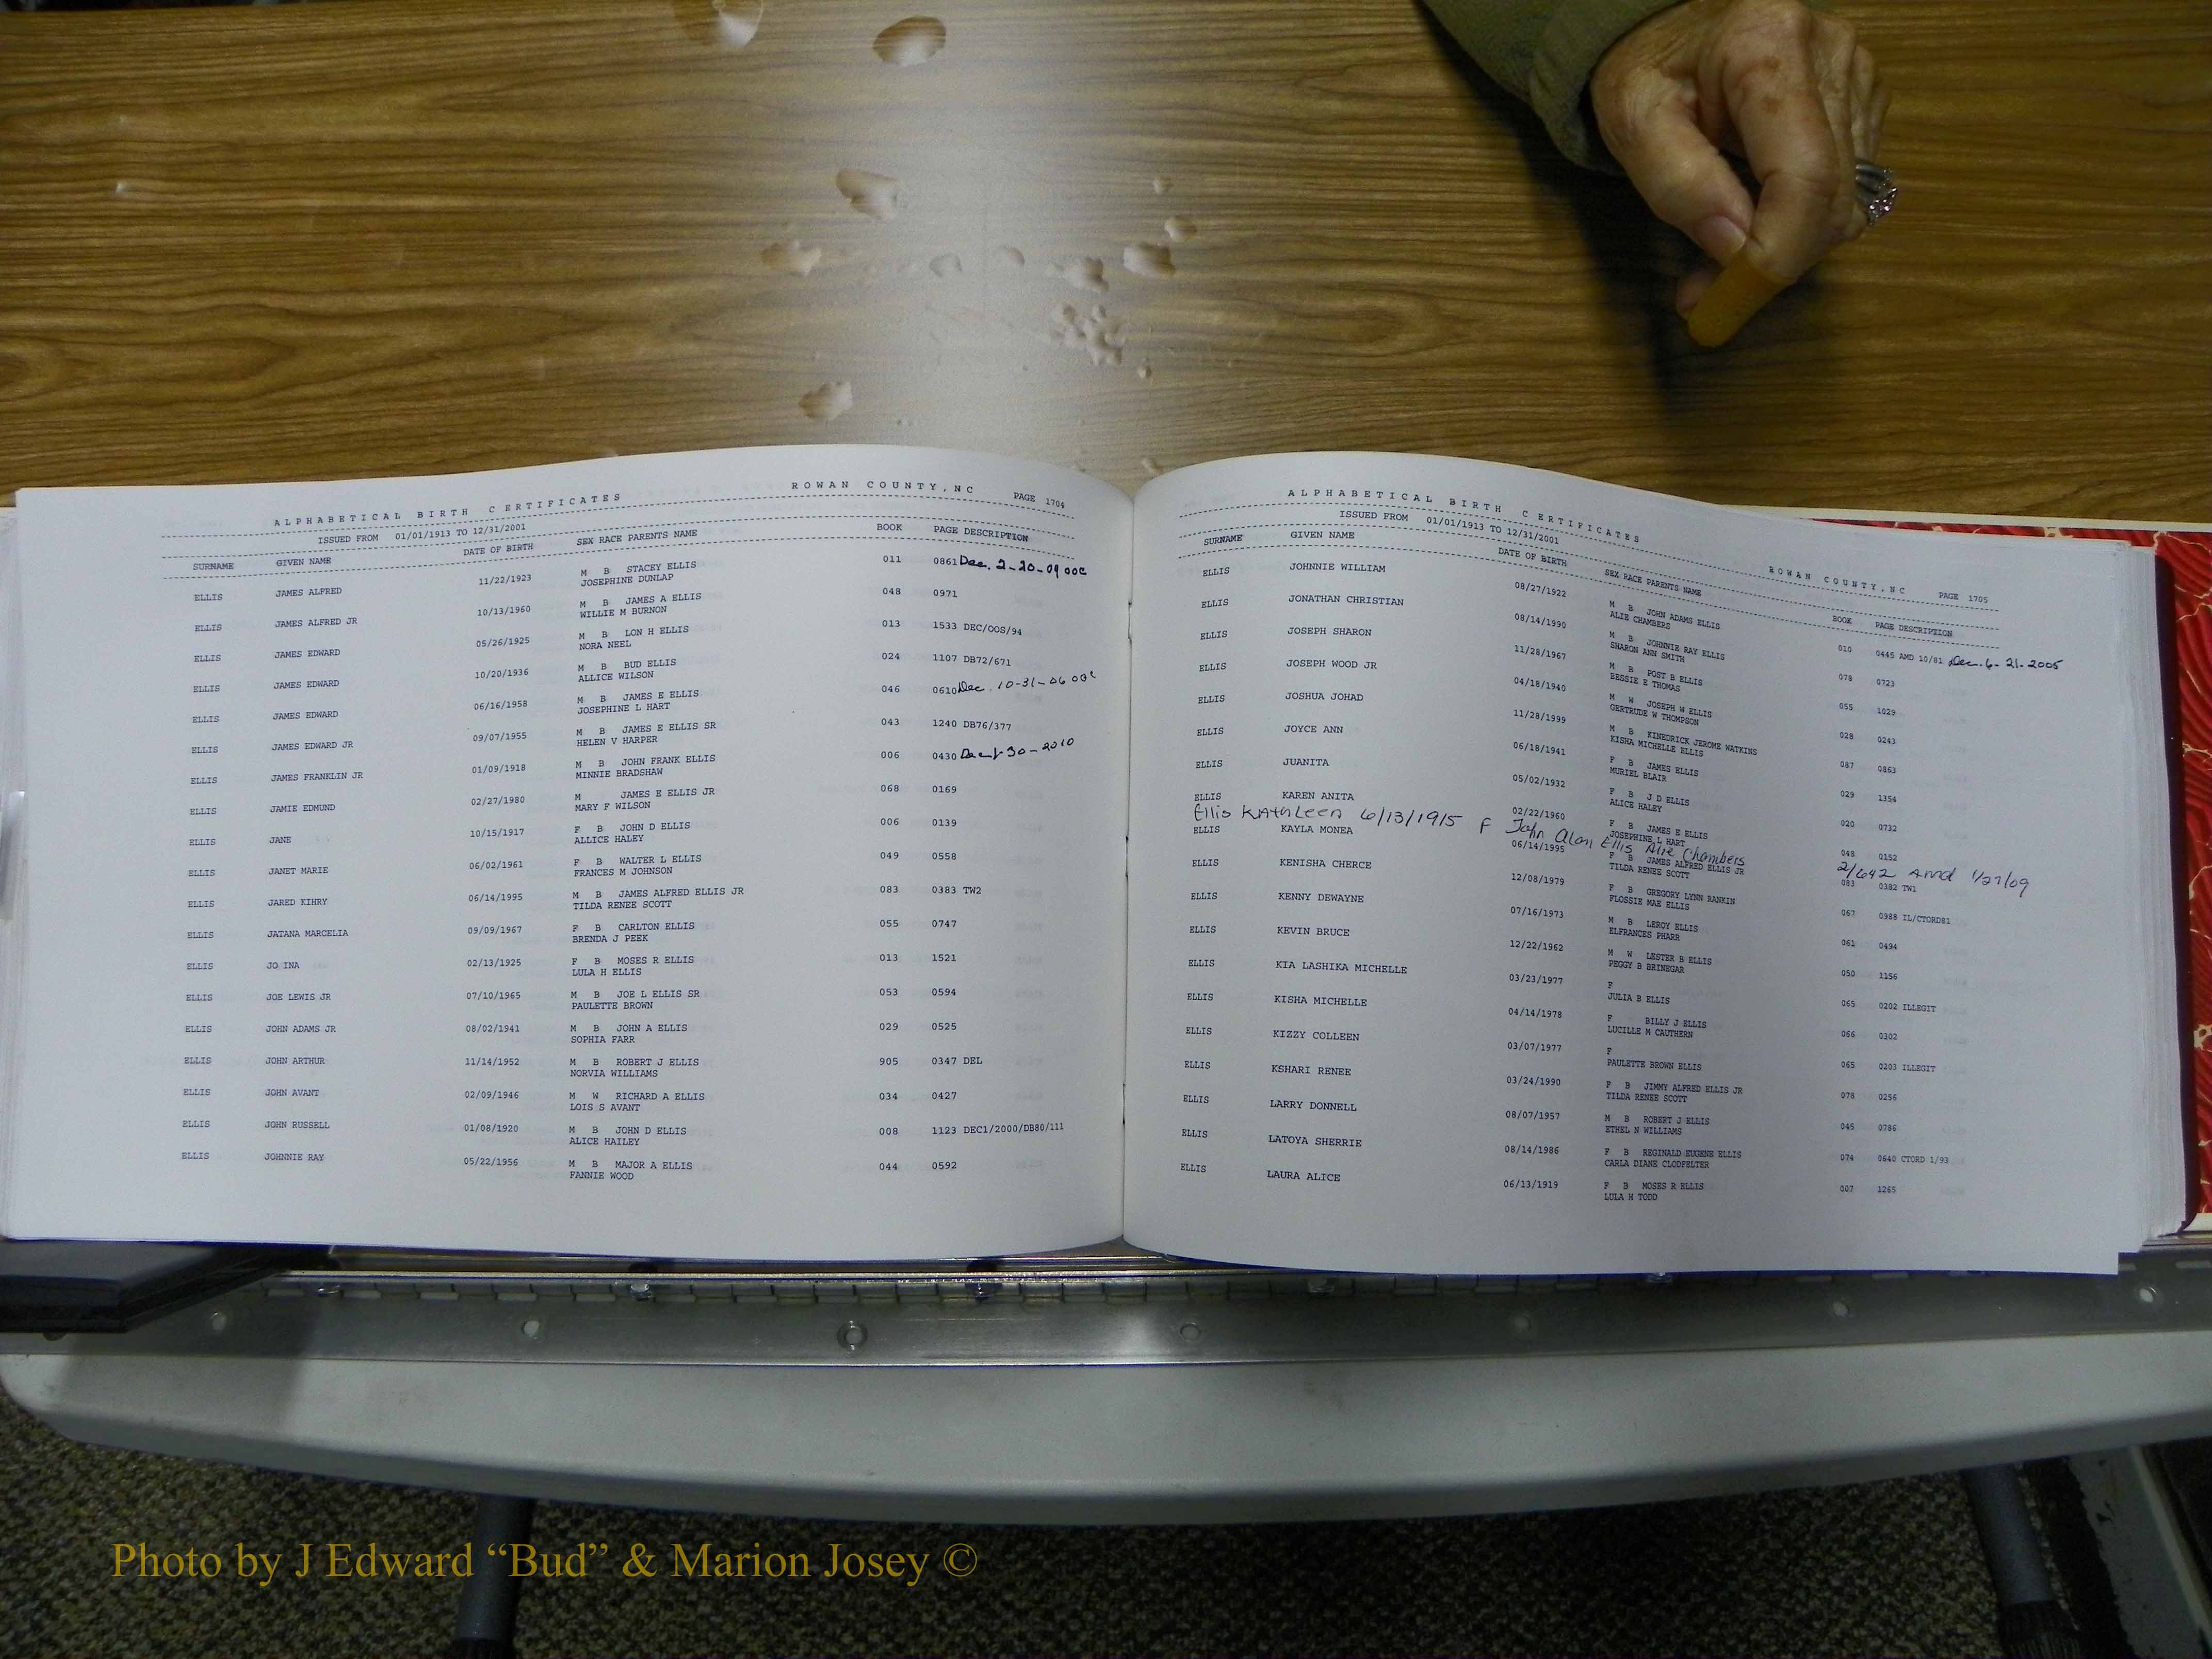 ALPHABETICAL BIRTH CERTIFICATES ROWAN COUNTY, NC PAGE 1704
ISSUED FROM 01/01/1913 TO 12/31/2001
SURNAME GIVEN NAME DATE OF BIRTH SEX RACE PARENTS NAME BOOK PAGE DESCRIPTION
ELLIS JAMES ALFRED 11/22/1923 M B STACEY ELLIS 011 0861 Dec. 2-20-09 OOC
JOSEPHINE DUNLAP
ELLIS JAMES ALFRED JR 10/13/1960 M B JAMES A ELLIS 048 0971
WILLIE M BURNON
ELLIS JAMES EDWARD 05/26/1925 M B LON H ELLIS 013 1533 DEC/OOS/94
NORA NEEL
ELLIS JAMES EDWARD 10/20/1936 M B BUD ELLIS 024 1107 DB72/671
ALLICE WILSON
ELLIS JAMES EDWARD 06/16/1958 M B JAMES E ELLIS 046 0610 Dec. 10-31-06 OOC
JOSEPHINE L HART
ELLIS JAMES EDWARD JR 09/07/1955 M B JAMES E ELLIS SR 043 1240 DB76/377
HELEN V HARPER
ELLIS JAMES FRANKLIN JR 01/09/1918 M B JOHN FRANK ELLIS 006 0430
MINNIE BRADSHAW
ELLIS JAMIE EDMUND 02/27/1980 M JAMES E ELLIS JR 068 0169
MARY F WILSON
ELLIS JANE 10/15/1917 F B JOHN D ELLIS 006 0139
ALLICE HALEY
ELLIS JANET MARIE 06/02/1961 F B WALTER L ELLIS 049 0558
FRANCES M JOHNSON
ELLIS JARED KIHRY 06/14/1995 M B JAMES ALFRED ELLIS JR 083 0383 TW2
TILDA RENEE SCOTT
ELLIS JATANA MARCELIA 09/09/1967 F B CARLTON ELLIS 055 0747
BRENDA J PEEK
ELLIS JO INA 02/13/1925 F B MOSES R ELLIS 013 1521
LULA H ELLIS
ELLIS JOE LEWIS JR 07/10/1965 M B JOE L ELLIS SR 053 0594
PAULETTE BROWN
ELLIS JOHN ADAMS JR 08/02/1941 M B JOHN A ELLIS 029 0525
SOPHIA FARR
ELLIS JOHN ARTHUR 11/14/1952 M B ROBERT J ELLIS 905 0347 DEL
NORVIA WILLIAMS
ELLIS JOHN AVANT 02/09/1946 M W RICHARD A ELLIS 034 0427
LOIS S AVANT
ELLIS JOHN RUSSELL 01/08/1920 M B JOHN D ELLIS 008 1123 DEC1/2000/DB80/111
ALICE HAILEY
ELLIS JOHNNIE RAY 05/22/1956 M B MAJOR A ELLIS 044 0592
FANNIE WOOD
ALPHABETICAL BIRTH CERTIFICATES ROWAN COUNTY, NC PAGE 1705
ISSUED FROM 01/01/1913 TO 12/31/2001
SURNAME GIVEN NAME DATE OF BIRTH SEX RACE PARENTS NAME BOOK PAGE DESCRIPTION
ELLIS JOHNNIE WILLIAM 08/27/1922 M B JOHN ADAMS ELLIS 010 0445 AMD 10/81 Dec. 6-21-2005
ALIE CHAMBERS
ELLIS JONATHAN CHRISTIAN 08/14/1990 M B JOHNNIE RAY ELLIS 078 0723
SHARON ANN SMITH
ELLIS JOSEPH SHARON 11/28/1967 M B POST B ELLIS 055 1029
BESSIE E THOMAS
ELLIS JOSEPH WOOD JR 04/18/1940 M W JOSEPH W ELLIS 028 0243
GERTRUDE W THOMPSON
ELLIS JOSHUA JOHAD 11/28/1999 M B KINEDRICK JEROME WATKINS 087 0863
KISHA MICHELLE ELLIS
ELLIS JOYCE ANN 06/18/1941 F B JAMES ELLIS 029 1354
MURIEL BLAIR
ELLIS JUANITA 05/02/1932 F B J D ELLIS 020 0732
ALICE HALEY
ELLIS KAREN ANITA 02/22/1960 F B JAMES E ELLIS 048 0152
JOSEPHINE L HART
Ellis KAthleen 6/13/1915 F John Alan Ellis Alie Chambers 2/642 Amd 1/27/09
ELLIS KAYLA MONEA 06/14/1995 F B JAMES ALFRED ELLIS JR 083 0382 TW1
TILDA RENEE SCOTT
ELLIS KENISHA CHERCE 12/08/1979 F B GREGORY LYNN RANKIN 067 0988 IL/CTORD81
FLOSSIE MAE ELLIS
ELLIS KENNY DEWAYNE 07/16/1973 M B LEROY ELLIS 061 0494
ELFRANCES PHARR
ELLIS KEVIN BRUCE 12/22/1962 M W LESTER B ELLIS 050 1156
PEGGY B BRINEGAR
ELLIS KIA LASHIKA MICHELLE 03/23/1977 F 065 0202 ILLEGIT
JULIA B ELLIS
ELLIS KISHA MICHELLE 04/14/1978 F BILLY J ELLIS 066 0302
LUCILLE M CAUTHERN
ELLIS KIZZY COLLEEN 03/07/1977 F 065 0203 ILLEGIT
PAULETTE BROWN ELLIS
ELLIS KSHARI RENEE 03/24/1990 F B JIMMY ALFRED ELLIS JR 078 0256
TILDA RENEE SCOTT
ELLIS LARRY DONNELL 08/07/1957 M B ROBERT J ELLIS 045 0786
ETHEL N WILLIAMS
ELLIS LATOYA SHERRIE 08/14/1986 F B REGINALD EUGENE ELLIS 074 0640 CTORD 1/93
CARLA DIANE CLODFELTER
ELLIS LAURA ALICE 06/13/1919 F B MOSES R ELLIS 007 1265
LULA H TODD
Photo by J Edward “Bud” & Marion Josey ©